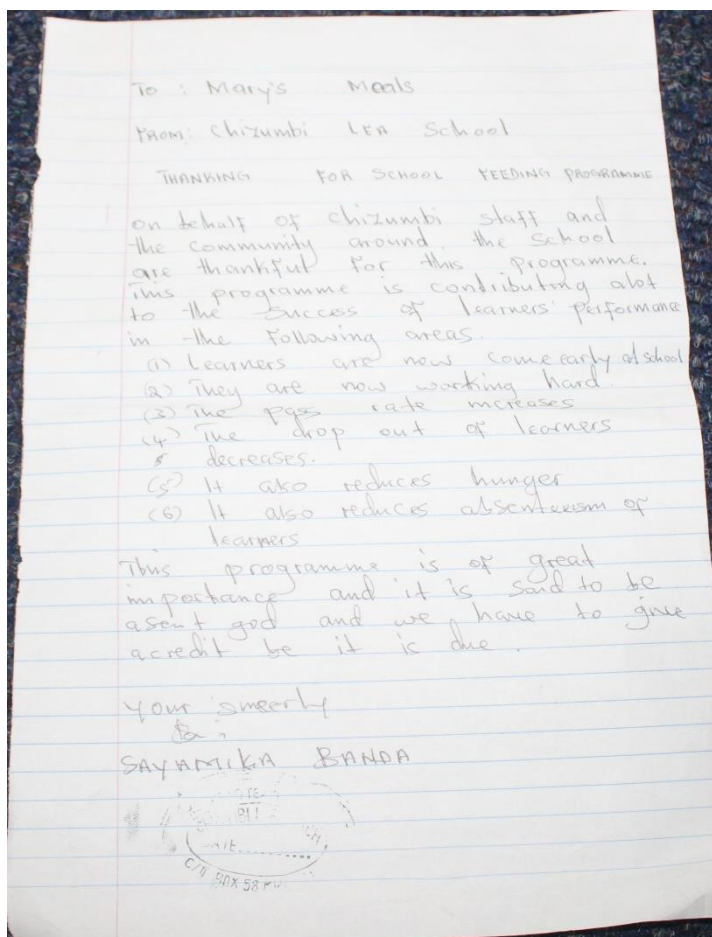 To : Mary's Meals
FROM: Chizumbi LEA School
THANKING FOR SCHOOL FEEDING PROGRAMME
on behalf of Chizumbi staff and
the community around. the school
are thankful for this programme.
This programme is contributing alot
to the success of learners' performance
in the following areas.
(1) Learners are now come early at school
(2) They are now working hard.
(3) The pass rate increases
(4) The drop out of learners
decreases.
(5) It also reduces hunger
(6) It also reduces absenteeism of
learners
This programme is of great
importance and it is said to be
asent god and we have to give
acredit be it is due.
your sincerly
SAYAMIKA BANDA
BOX 58